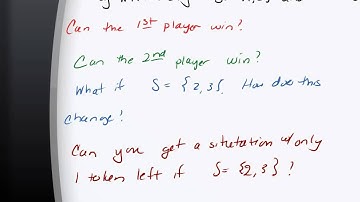 Can the 1st player win?
Can the 2nd player win?
What if S = {2,3}. How does this
change?
Can you get a situtation w/only
1 token left if S = {2,3}?